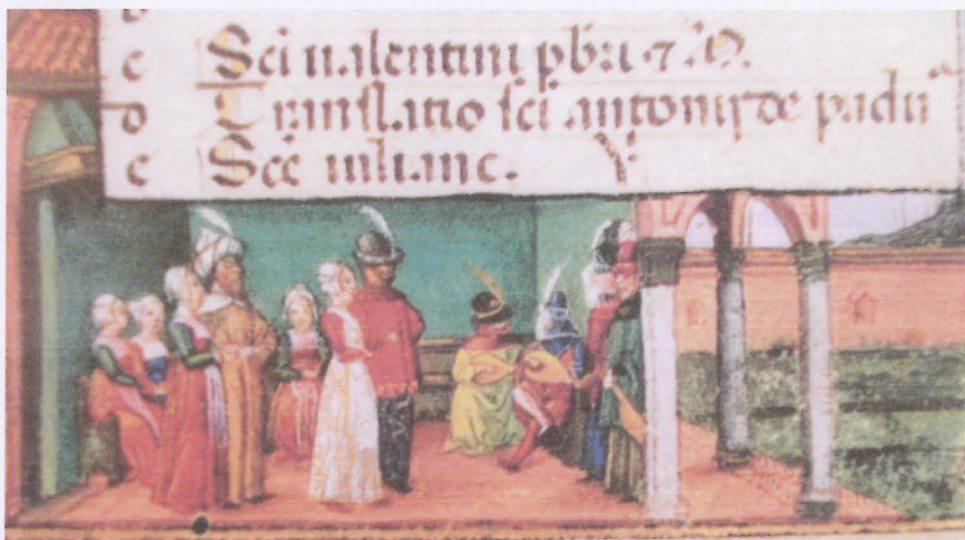 c Sci ualentini pbri ⁊ M.
d Translatio sci antonij de padua
e Sce iuliane. V.